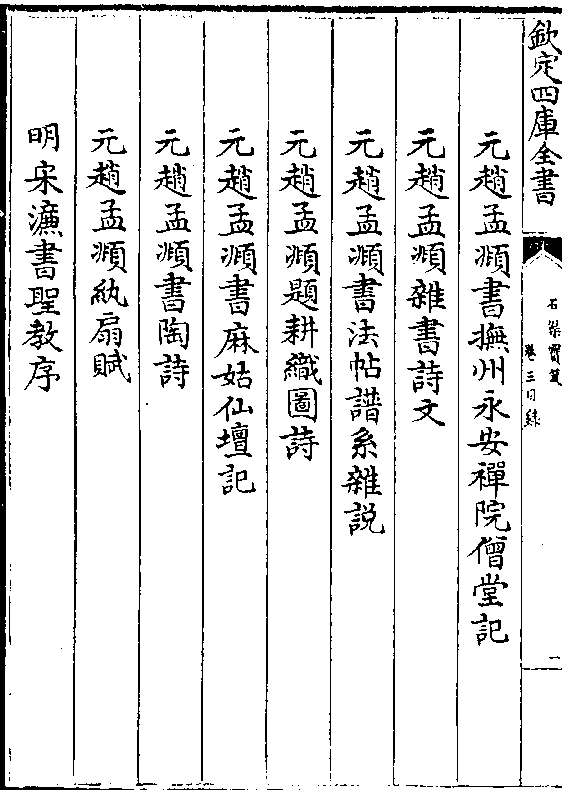 欽定四庫全書
石渠寳笈
卷三目録
一
元趙孟頫書撫州永安禪院僧堂記
元趙孟頫雜書詩文
元趙孟頫書法帖譜系雜説
元趙孟頫題耕織圖詩
元趙孟頫書麻姑仙壇記
元趙孟頫書陶詩
元趙孟頫紈扇賦
明宋濂書聖教序